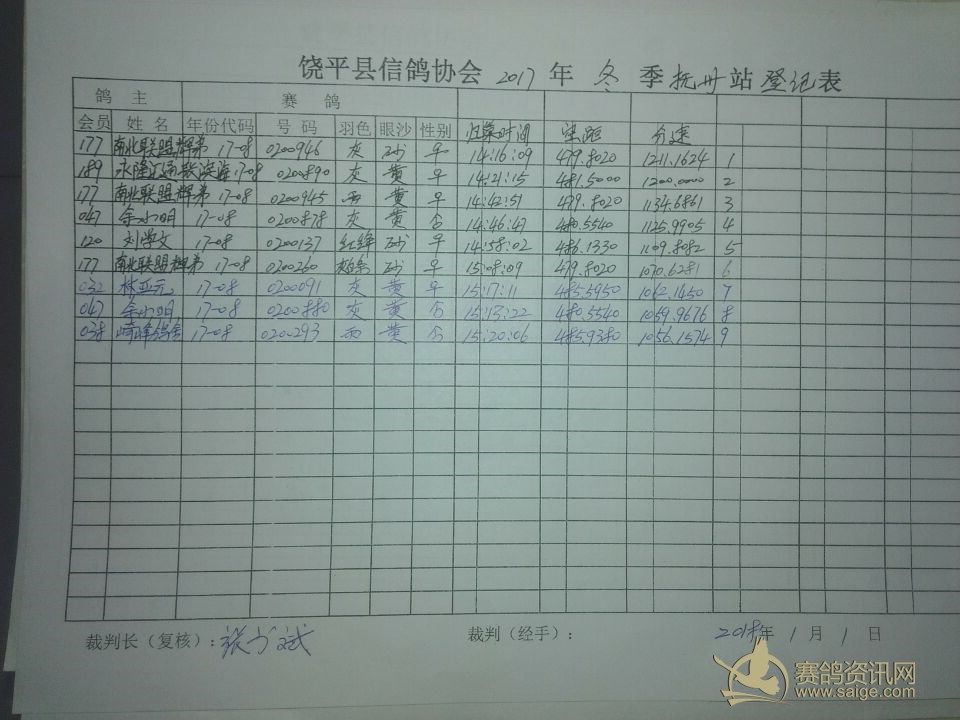 饶平县信鸽协会 2017 年 冬 季 抚州 站 登记 表
鸽 主 赛 鸽
会员 姓 名 年份代码 号 码 羽色 眼沙 性别 归巢时间 空距 分速
177 南北联盟辉弟 17-08 0200946 灰 砂 14:16:09 479.8020 1211.1624 1
189 永隆汇通 17-08 0200890 灰 黄 14:21:15 481.5000 1200.0000 2
177 南北联盟辉弟 17-08 0200945 雨 黄 14:42:51 479.8020 1134.6861 3
047 余小明 17-08 0200878 灰 黄 14:46:47 480.5540 1125.9905 4
120 刘学文 17-08 0200137 红绛 砂 14:58:02 486.1330 1109.8082 5
177 南北联盟辉弟 17-08 0200260 砂 15:08:09 479.8020 1070.6281 6
032 林亚元 17-08 0200091 灰 黄 15:17:11 485.5950 1062.1450 7
047 余小明 17-08 0200880 灰 黄 15:13:22 480.5540 1059.9676 8
038 崎峰鸽舍 17-08 0200293 雨 黄 15:20:06 485.9380 1056.1574 9
裁判长（复核）：张少斌 裁判（经手）： 2018年 1 月 1 日
赛鸽资讯网
www.saige.com